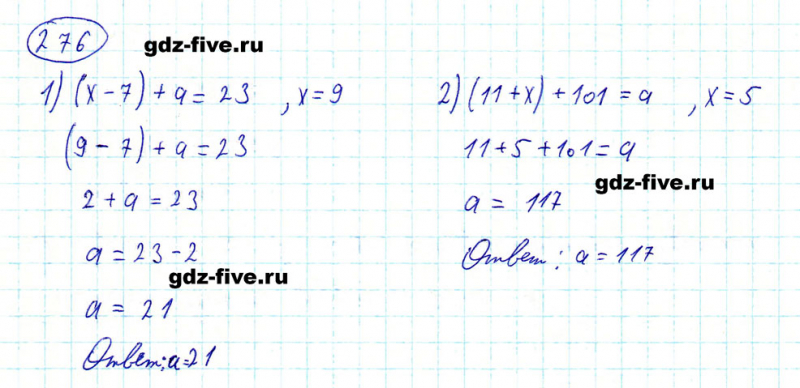 276 gdz-five.ru
1) (x-7)+a=23, x=9
(9-7)+a=23
2+a=23
a=23-2
gdz-five.ru
a=21
Ответ: a=21
2) (11+x)+101=a, x=5
11+5+101=a
gdz-five.ru
a=117
Ответ: a=117